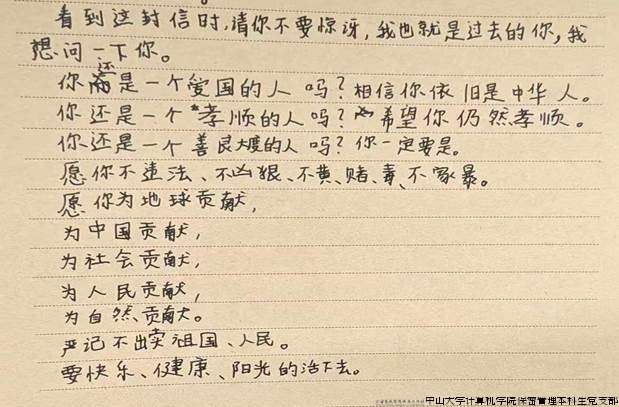 看到这封信时,请你不要惊讶,我也就是过去的你,我
想问一下你。
你还是一个爱国的人吗?相信你依旧是中华人。
你还是一个孝顺的人吗?希望你仍然孝顺。
你还是一个善良大度的人吗?你一定要是。
愿你不违法、不凶狠、不黄、赌、毒、不家暴。
愿你为地球贡献,
为中国贡献,
为社会贡献,
为人民贡献,
为自然贡献。
严记不出卖祖国、人民。
要快乐、健康、阳光的活下去。
中山大学计算机学院保留管理本科生党支部